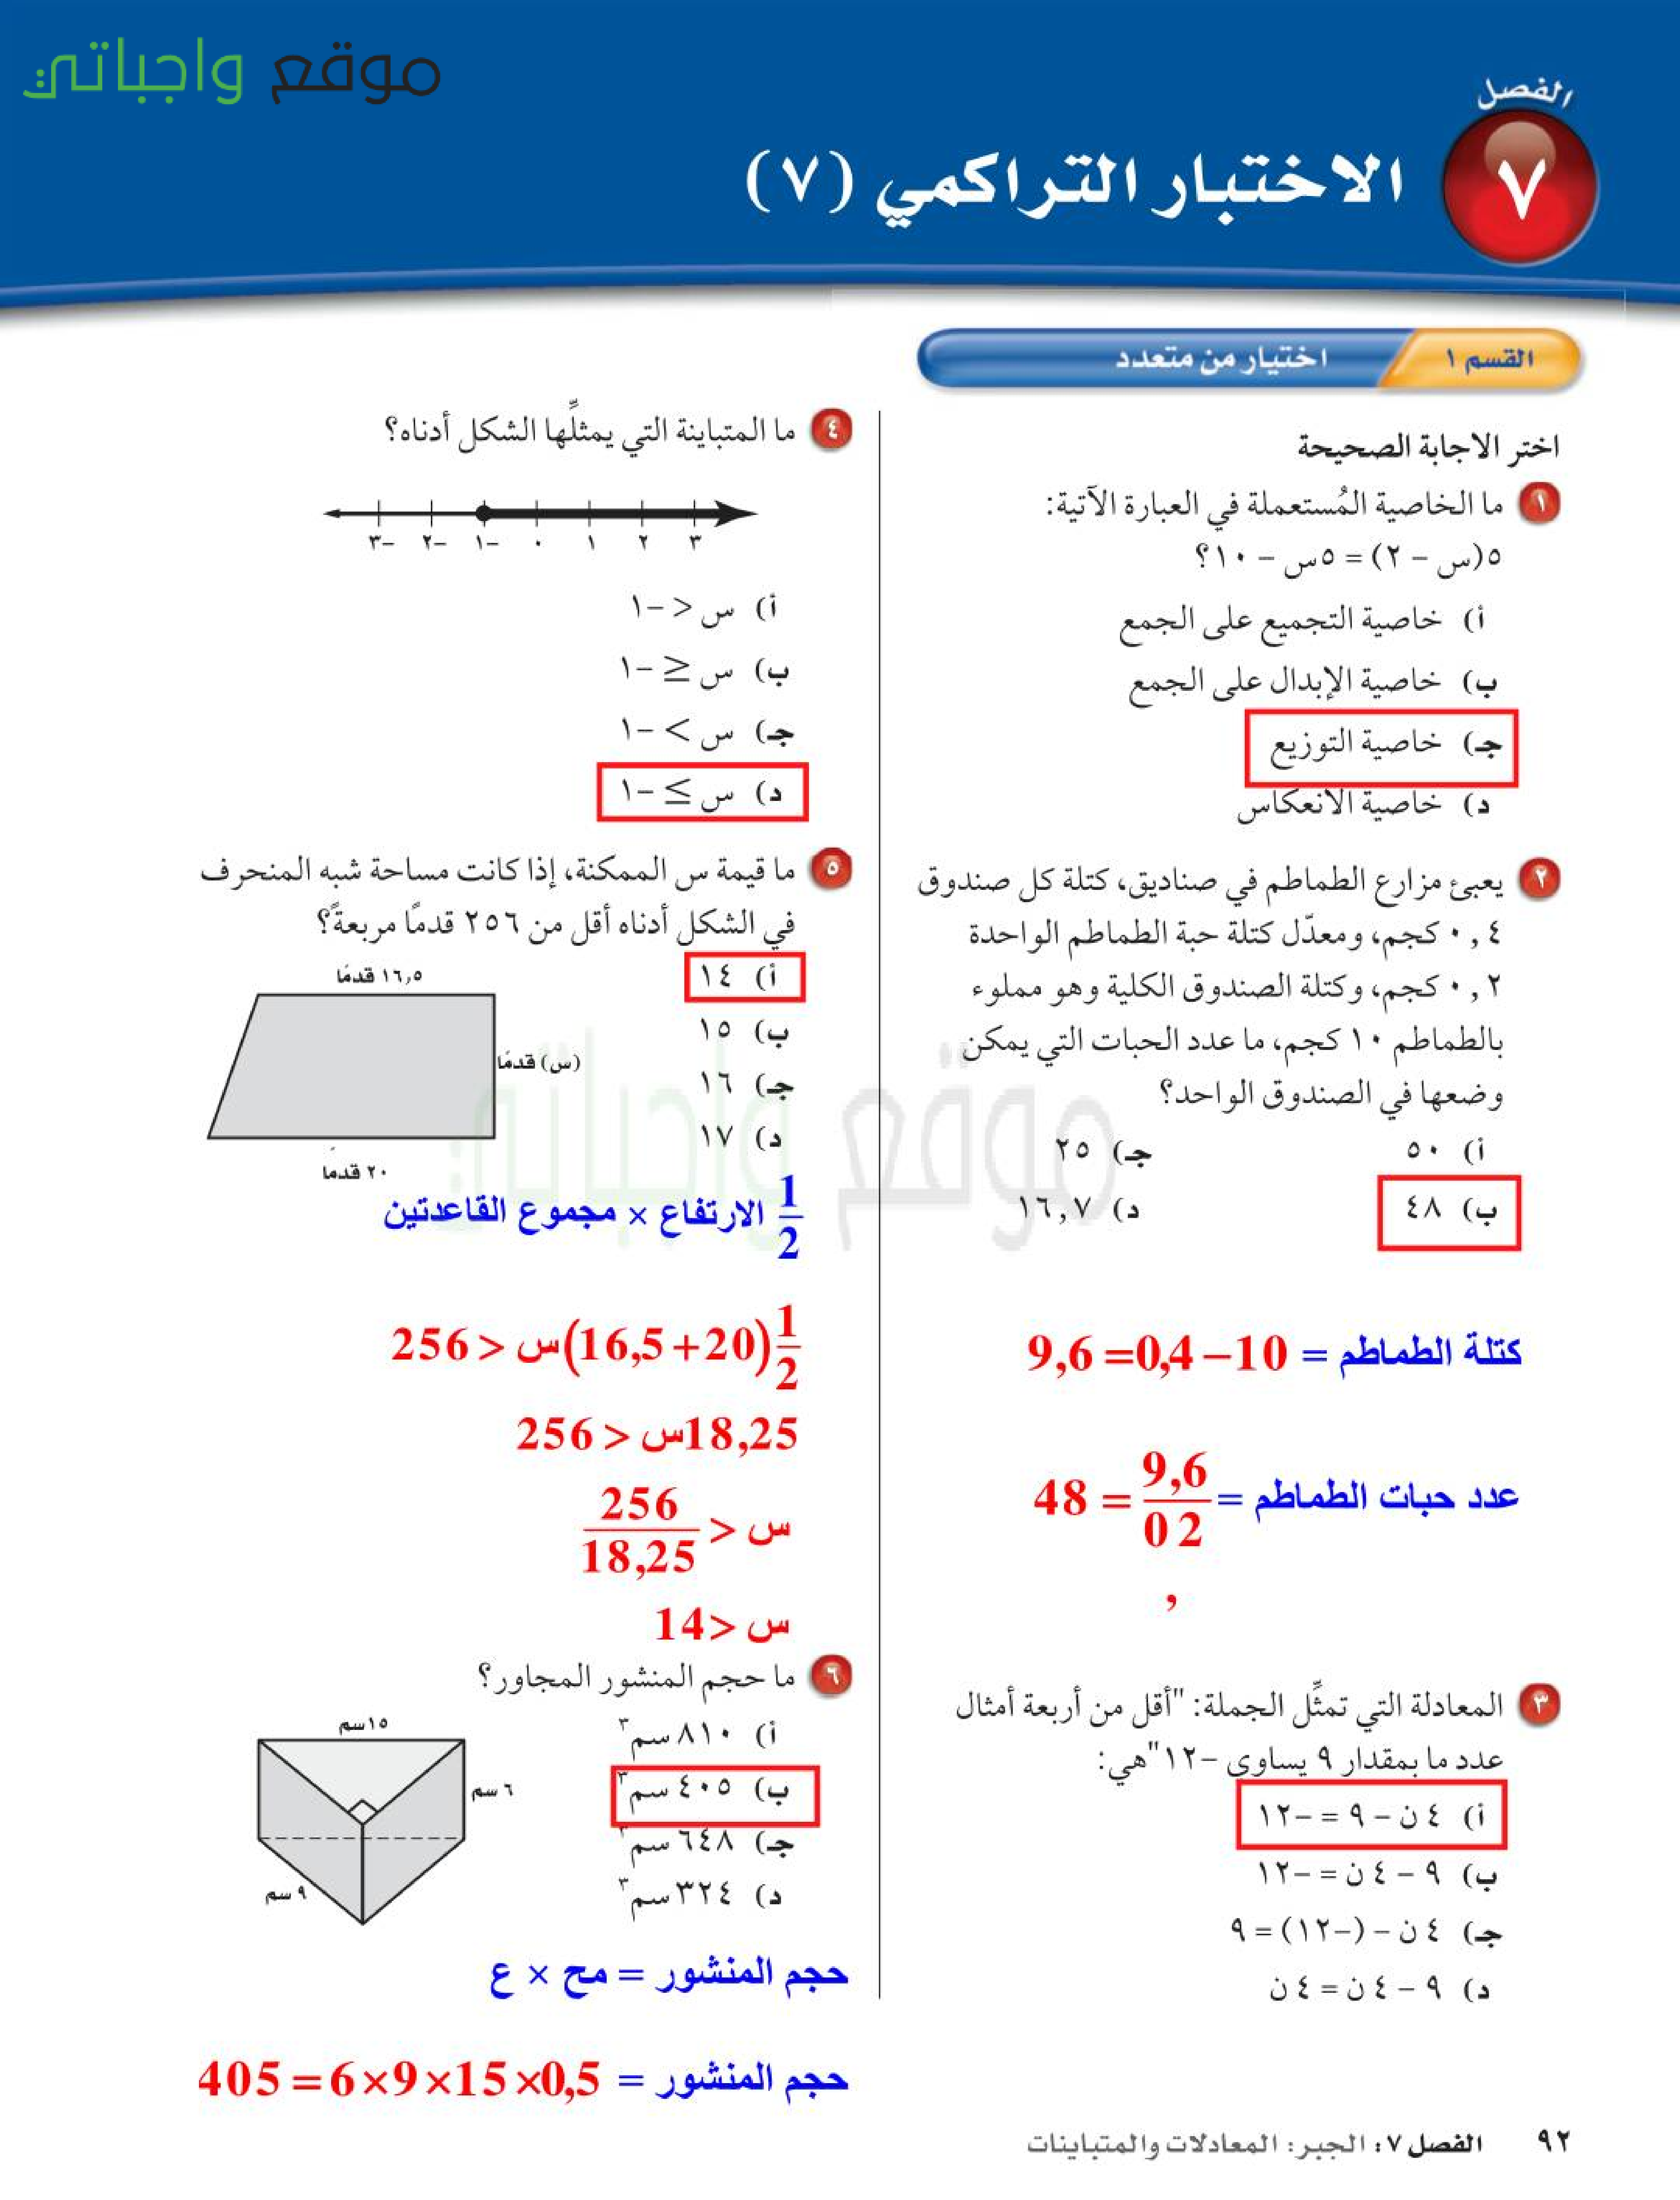 موقع واجباتي
الفصل
٧
الاختبار التراكمي (٧)
القسم ١
اختيار من متعدد
اختر الاجابة الصحيحة
١ ما الخاصية المُستعملة في العبارة الآتية:
٥(س – ٢) = ٥س – ١٠؟
أ) خاصية التجميع على الجمع
ب) خاصية الإبدال على الجمع
جـ) خاصية التوزيع
د) خاصية الانعكاس
٢ يعبئ مزارع الطماطم في صناديق، كتلة كل صندوق
٠,٤ كجم، ومعدّل كتلة حبة الطماطم الواحدة
٠,٢ كجم، وكتلة الصندوق الكلية وهو مملوء
بالطماطم ١٠ كجم، ما عدد الحبات التي يمكن
وضعها في الصندوق الواحد؟
أ) ٥٠ جـ) ٢٥
ب) ٤٨ د) ١٦,٧
كتلة الطماطم = 10 – 0,4= 9,6
عدد حبات الطماطم = 9,6 / 0 2 = 48
,
٣ المعادلة التي تمثِّل الجملة: "أقل من أربعة أمثال
عدد ما بمقدار ٩ يساوي –١٢" هي:
أ) ٤ ن – ٩ = –١٢
ب) ٩ – ٤ ن = –١٢
جـ) ٤ ن – (–١٢) = ٩
د) ٩ – ٤ ن = ٤ ن
٤ ما المتباينة التي يمثلِّها الشكل أدناه؟
–٣ –٢ –١ ٠ ١ ٢ ٣
أ) س < –١
ب) س ≤ –١
جـ) س > –١
د) س ≥ –١
٥ ما قيمة س الممكنة، إذا كانت مساحة شبه المنحرف
في الشكل أدناه أقل من ٢٥٦ قدمًا مربعةً؟
أ) ١٤
ب) ١٥
جـ) ١٦
د) ١٧
١٦,٥ قدمًا
(س) قدمًا
٢٠ قدمًا
موقع واجباتي
1/2 الارتفاع × مجموع القاعدتين
1/2(20+16,5)س < 256
18,25س < 256
س < 256/18,25
س <14
٦ ما حجم المنشور المجاور؟
أ) ٨١٠ سم٣
ب) ٤٠٥ سم٣
جـ) ٦٤٨ سم٣
د) ٣٢٤ سم٣
١٥سم
٦ سم
٩ سم
حجم المنشور = مح × ع
حجم المنشور = 0,5×15×9×6=405
٩٢ الفصل ٧: الجبر: المعادلات والمتباينات